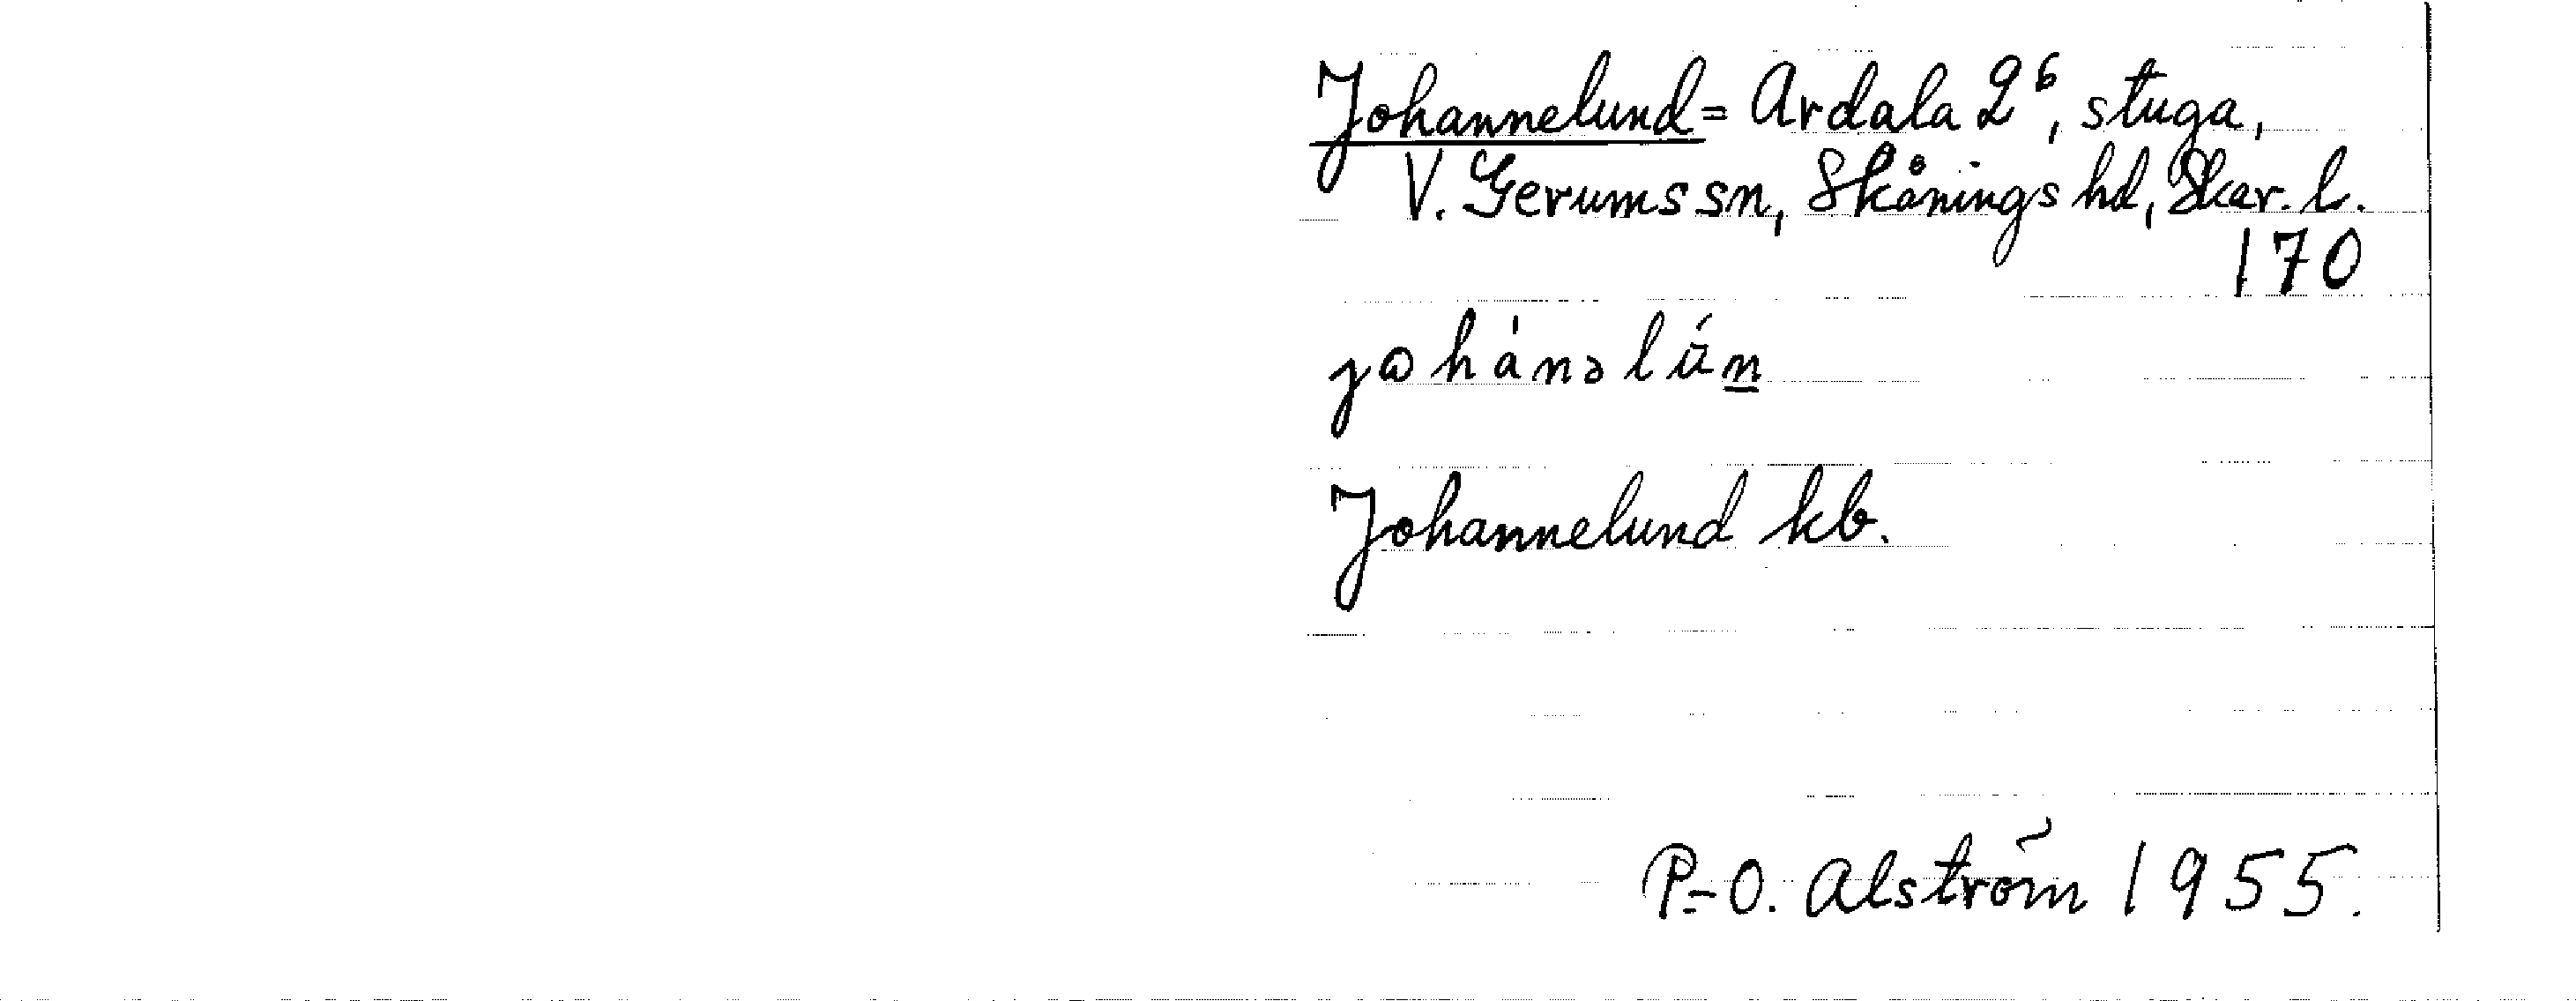 Johannelund = Ardala 2⁶, stuga,
V. Gerums sn, Skånings hd, Skar. l.
170
jɷhànəlú̄n̲
Johannelund kb.
P-O. Alström 1955.